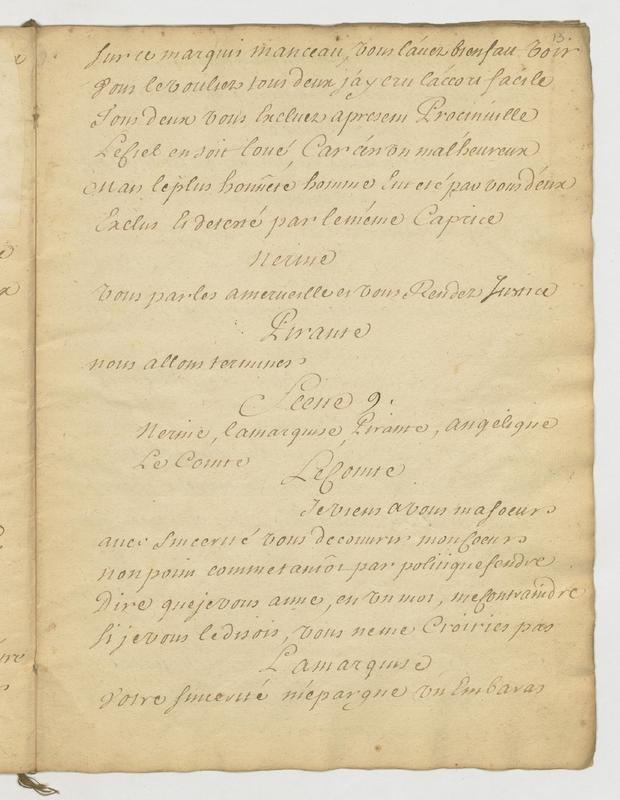 13.
sur ce marquis manceau, vous l'avez bien fait voir
Vous le vouliez tous deux j'ay cru l'accort facile
Tous deux vous Excluez apresent Procinville
Le Ciel en soit loué, Car c'est un malheureux
Mais le plus honnéte homme Eut eté par vous deux
Exclus Et detesté par le méme Caprice
Nerine
vous parles a merveille et vous Rendez Justice
Pirante
nous allons terminer
Scene 9.
Nerine, la marquise, Pirante, angélique
Le Comte
Le Comte
Je viens a vous ma soeur
avec sincerité vous decouvrir mon Coeur
non point comme tantôt par politique feindre
Dire que je vous aime, en un mot, me Contraindre
si je vous le disois, vous ne me Croiries pas
La marquise
Votre sincerité m'épargne un Embaras